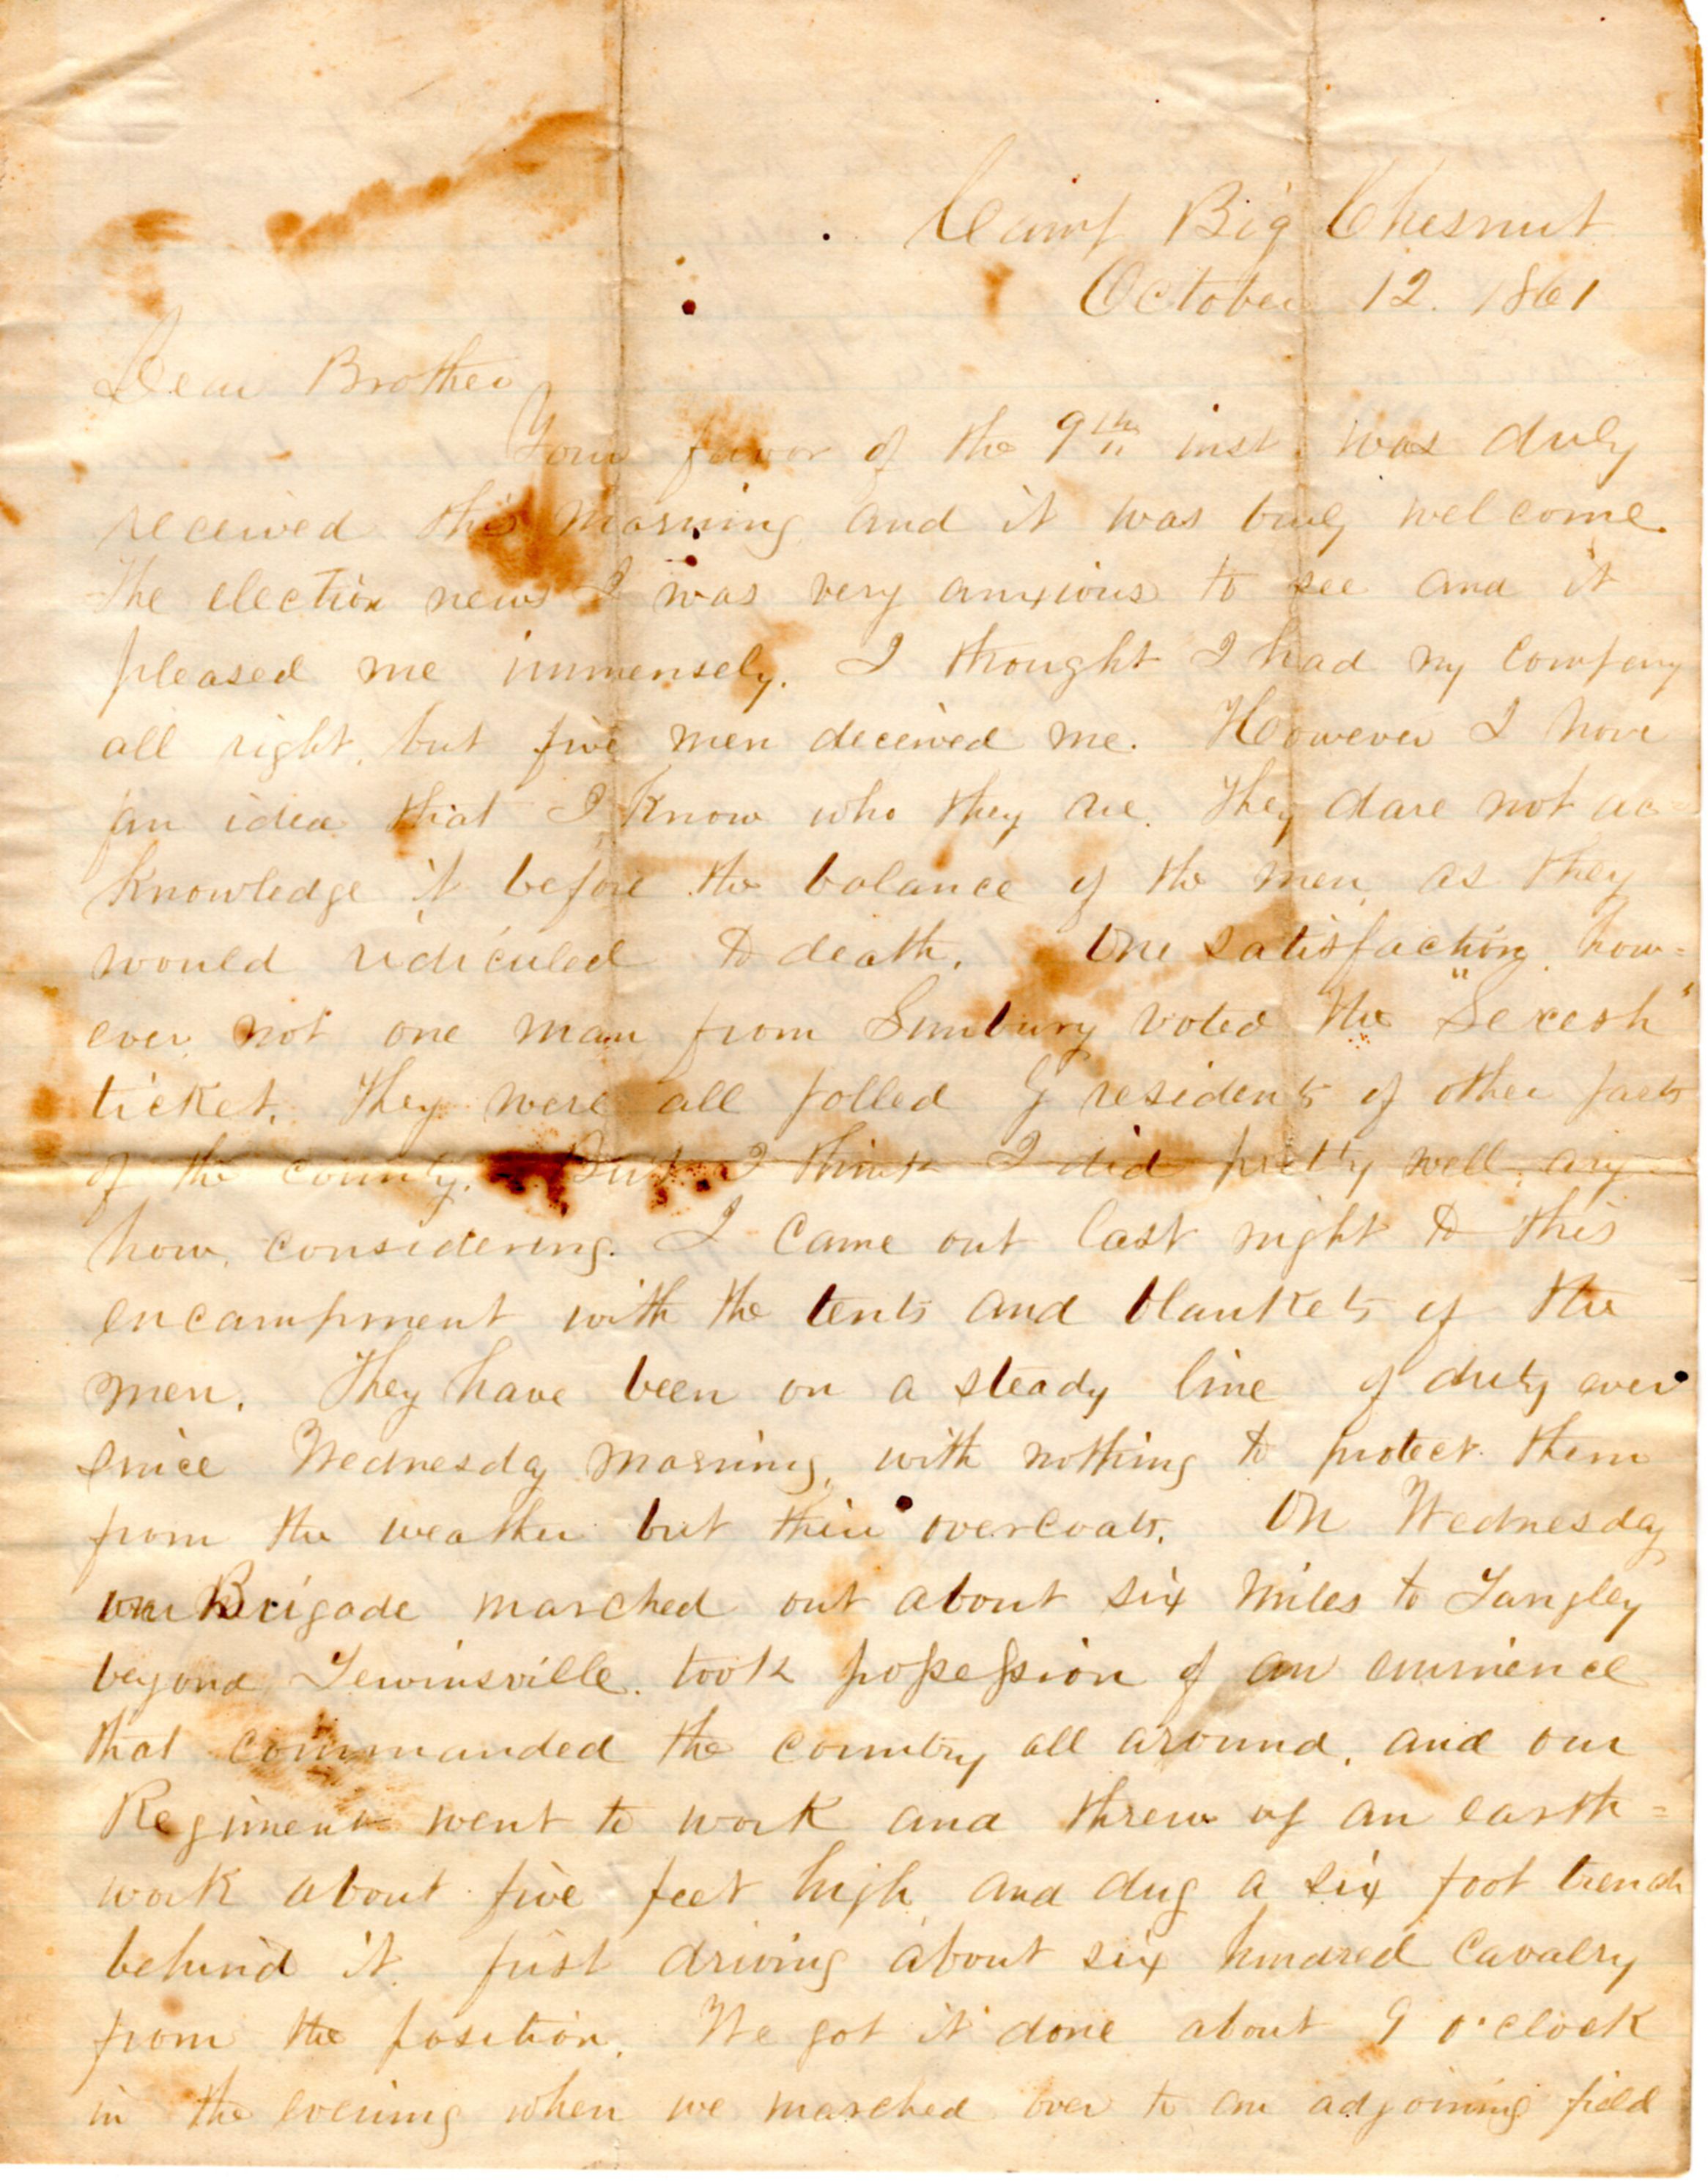 Camp Big Chesnut
October 12. 1861
Dear Brother
Your favor of the 9th inst was duly
received this morning and it was truly welcome
The election news I was very anxious to see and it
pleased me immensely. I thought I had my company
all right, but five men deceived me. However I have
an idea that I know who they are. They dare not ac=
knowledge it before the balance of the men as they
would ridiculed to death. One satisfaction how=
ever not one man from Sunbury voted the "Secesh"
ticket. They were all polled by residents of other parts
of the county. But I think I did pretty well any
how, considering. I came out last night to this
encampment with the tents and blankets of the
men. They have been on a steady line of duty ever
since Wednesday morning, with nothing to protect them
from the weather but their overcoats. On Wednesday
our Brigade marched out about six miles to Langley
beyond Lewinsville. took possession of an eminence
that commanded the country all around, and our
Regiment went to work and threw up an earth=
work about five feet high and dug a six foot trench
behind it. first driving about six hundred Cavalry
from the position. We got it done about 9 o'clock
in the evening when we marched over to an adjoining field